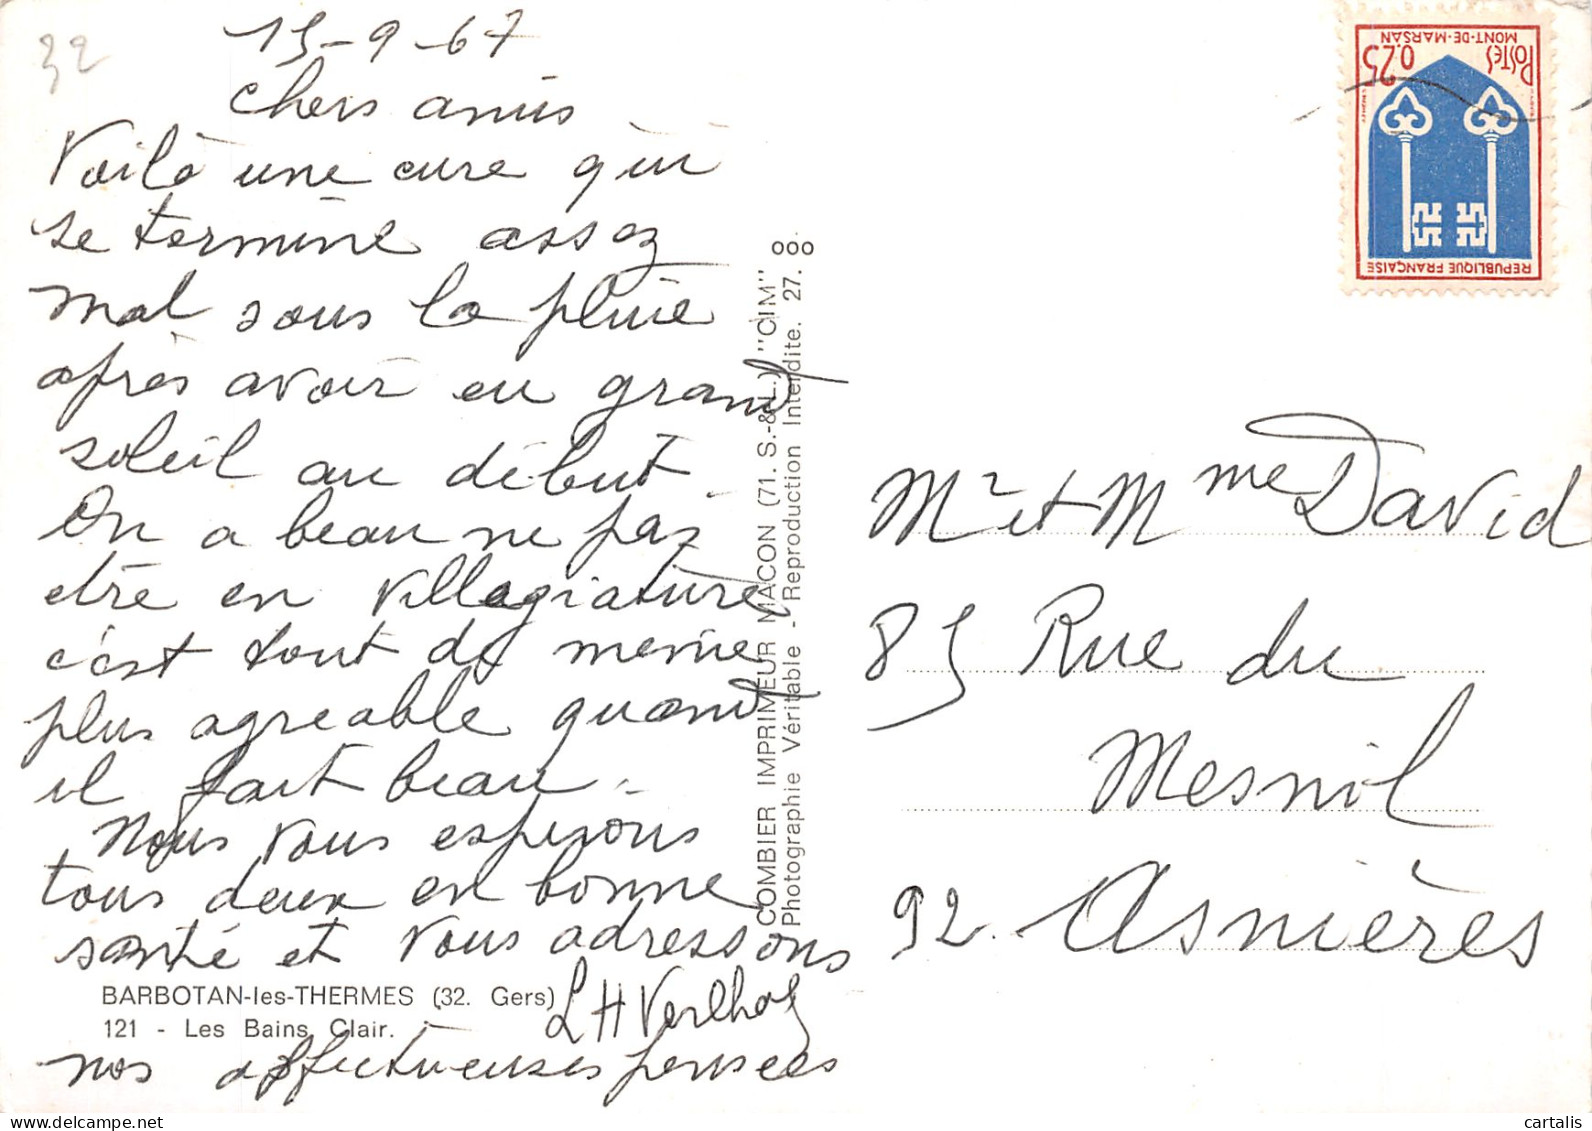 32
15-9-67
Chers amis
Voilà une cure qui
se termine assez
mal sous la pluie
après avoir eu grand
soleil au début.
On a beau ne pas
être en villégiature
c'est tout de même
plus agréable quand
il fait beau.
Nous vous espérons
tous deux en bonne
santé et vous adressons
BARBOTAN-les-THERMES (32. Gers)
121 - Les Bains Clair.
nos affectueuses pensées
L H
COMBIER IMPRIMEUR MACON (71. S.-&-L.) "CIM"
Photographie Véritable - Reproduction Interdite. 27.
POSTES
0.25
MONT-DE-MARSAN
REPUBLIQUE FRANÇAISE
Mr et Mme David
85 Rue du
Mesnil
92. Asnières
cartalis